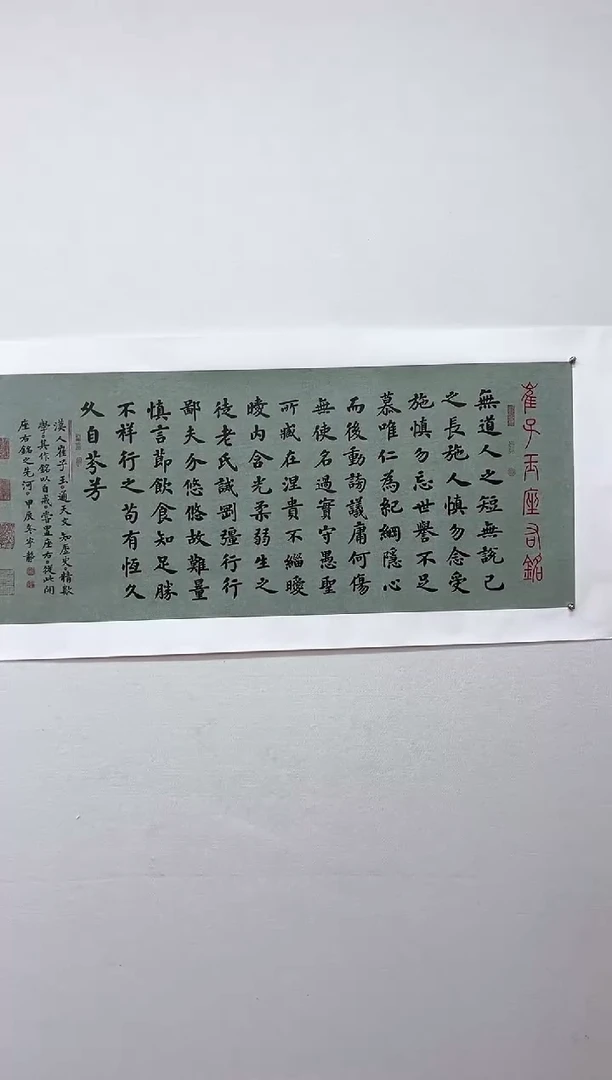 崔子玉座右銘
無道人之短無說己
之長施人慎勿念受
施慎勿忘世譽不足
慕唯仁為紀綱隱心
而後動謗議庸何傷
無使名過實守愚聖
所臧在涅貴不緇曖
曖內含光柔弱生之
徒老氏誡剛彊行行
鄙夫介悠悠故難量
慎言節飲食知足勝
不祥行之苟有恆久
久自芬芳
漢人崔子玉通天文知歷
學其作銘以自戒嘗置座右從此開
座右銘之先河甲辰冬